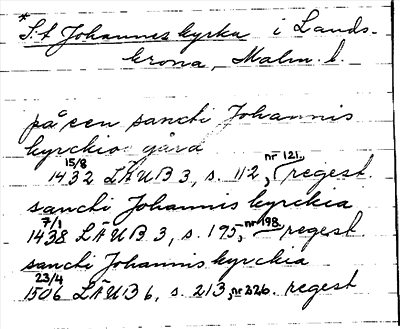 *
S:t Johannes kyrka i Lands-
krona, Malm. l.
på een sancti Johannis
kyrckio gård
15/8 1432 LÄUB 3, s. 112, nr 121. regest.
sancti Johannis kyrckia
7/1 1438 LÄUB 3, s. 195, nr 198. regest
sancti Johannis kyrckia
23/4 1506 LÄUB 6, s. 213, nr 226. regest